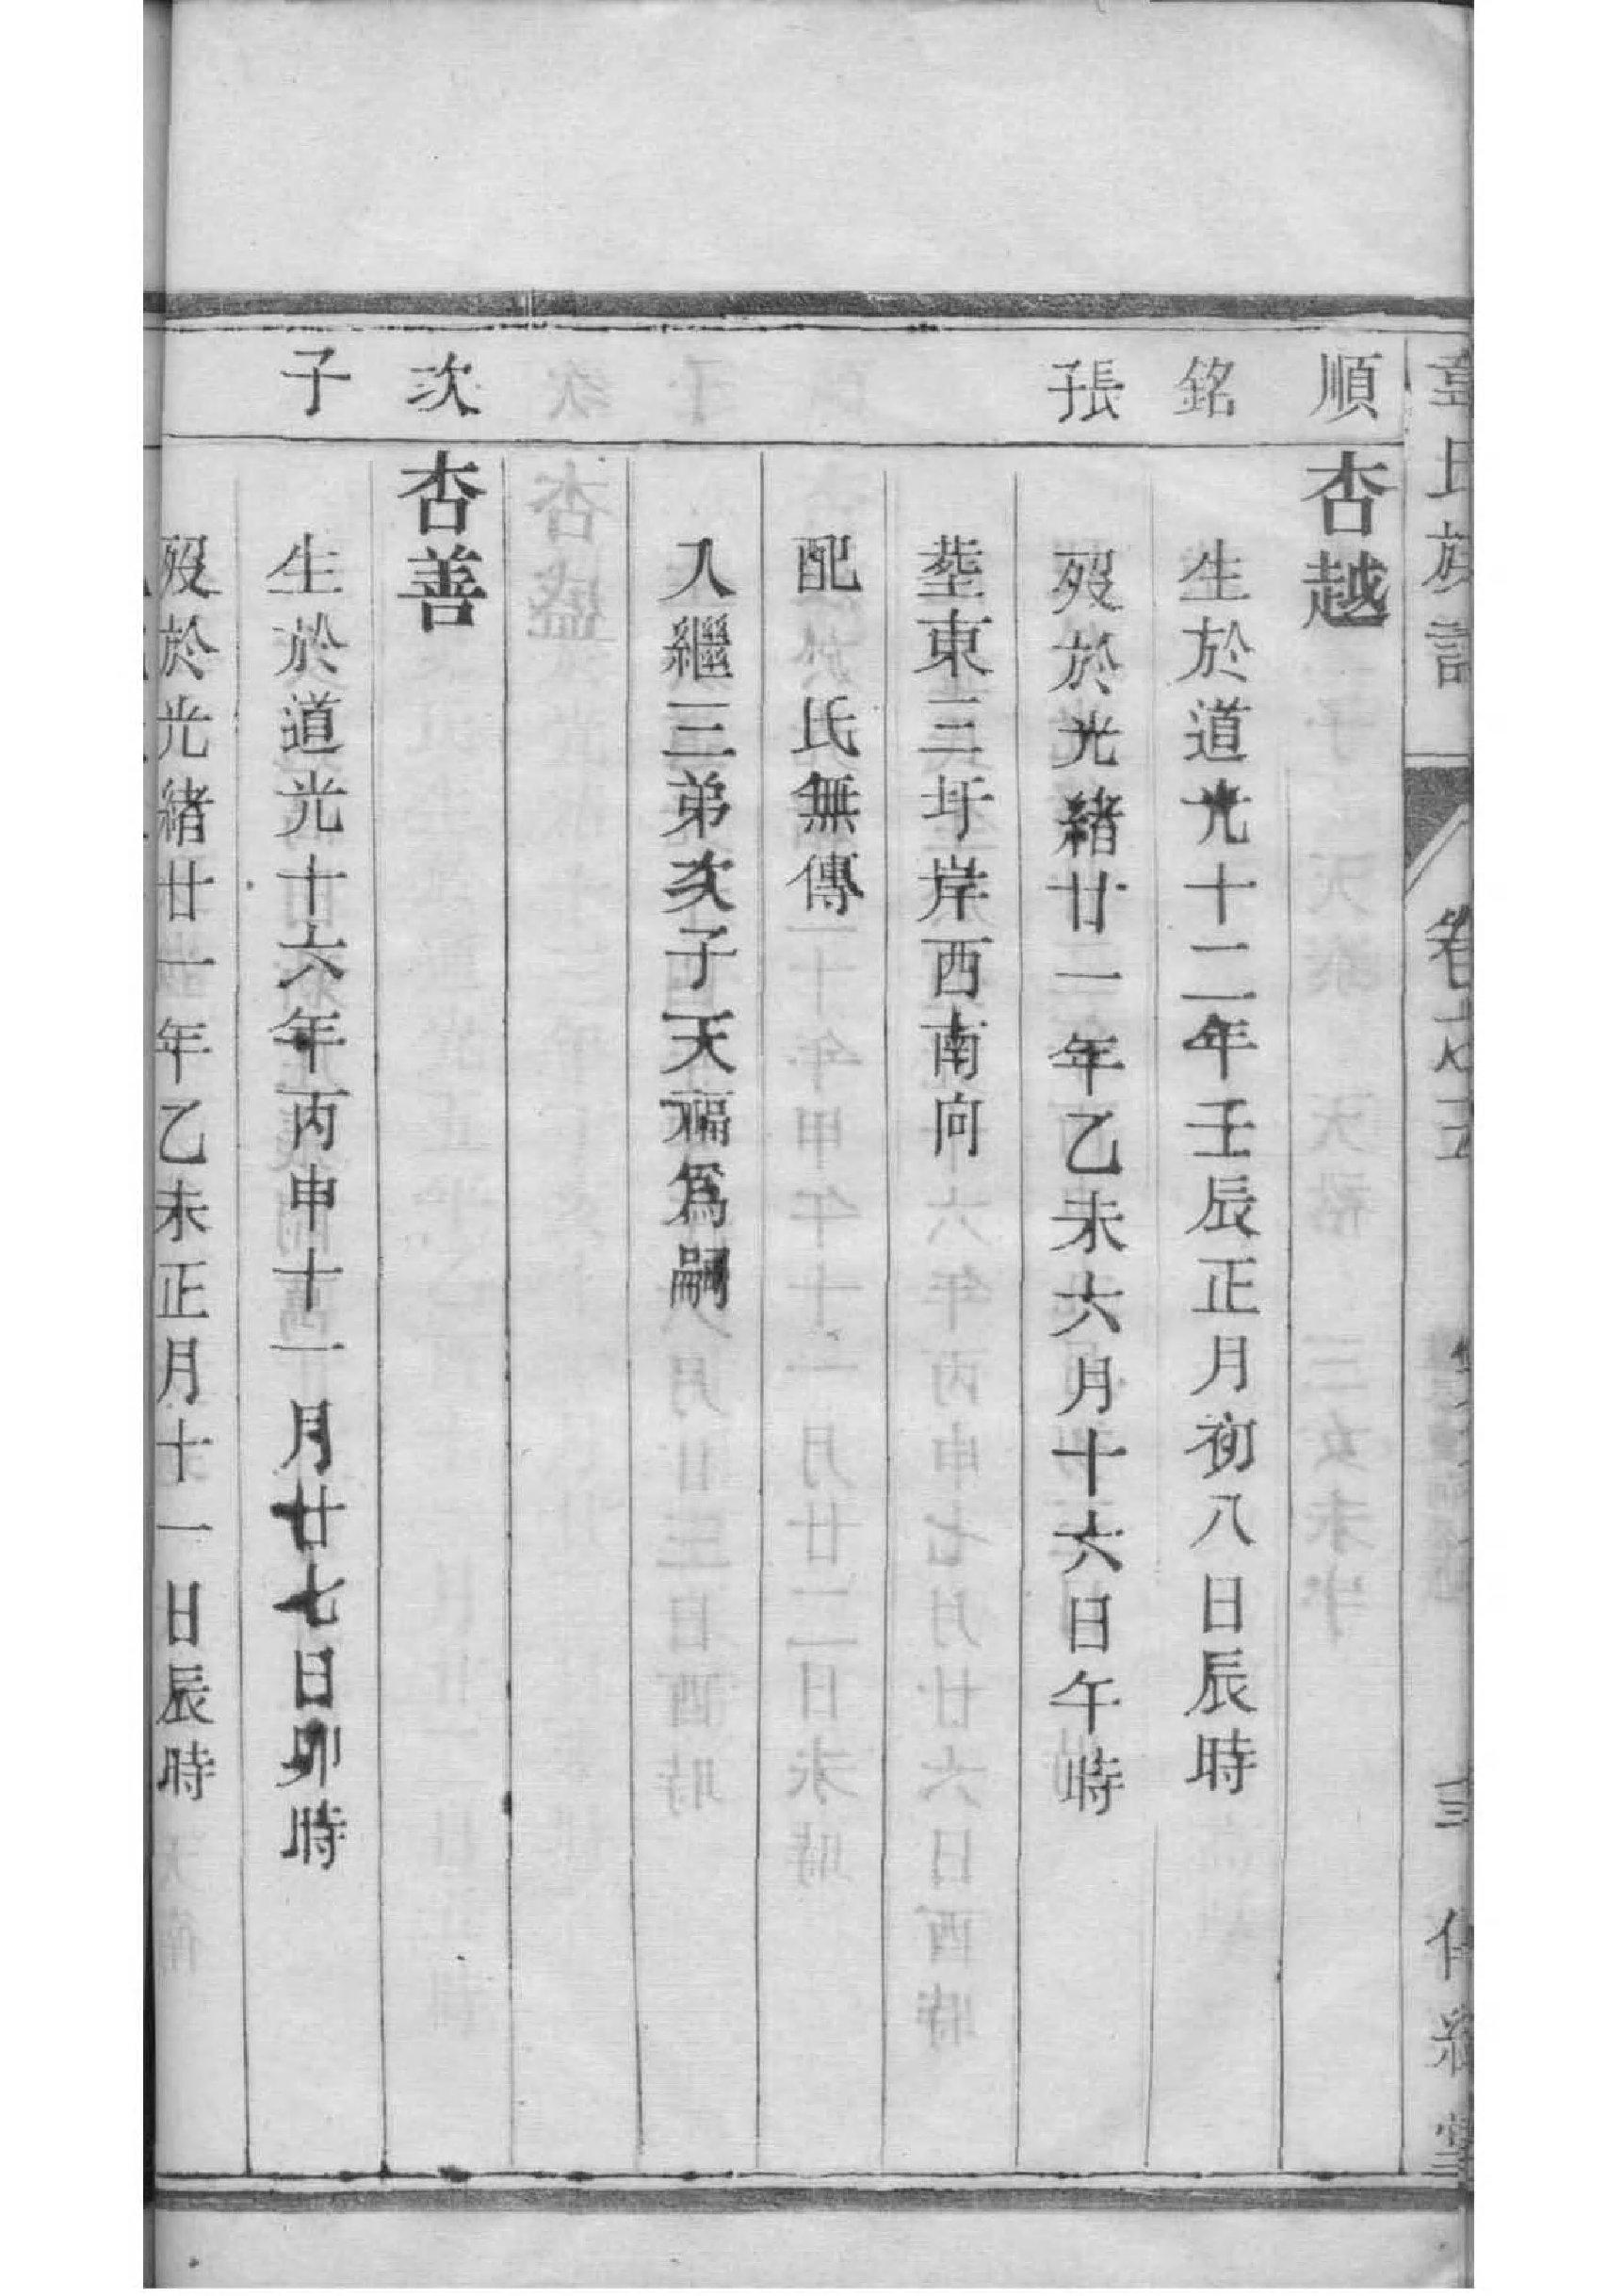 章氏族譜
順 杏越
銘 生於道光十二年壬辰正月初八日辰時
長子 歿於光緒廿一年乙未六月十六日午時
塟東三圩岸西南向
配 氏無傳
入繼三弟次子天福爲嗣
次 杏善
子 生於道光十六年丙申十一月廿七日卯時
歿於光緒廿一年乙未正月十一日辰時